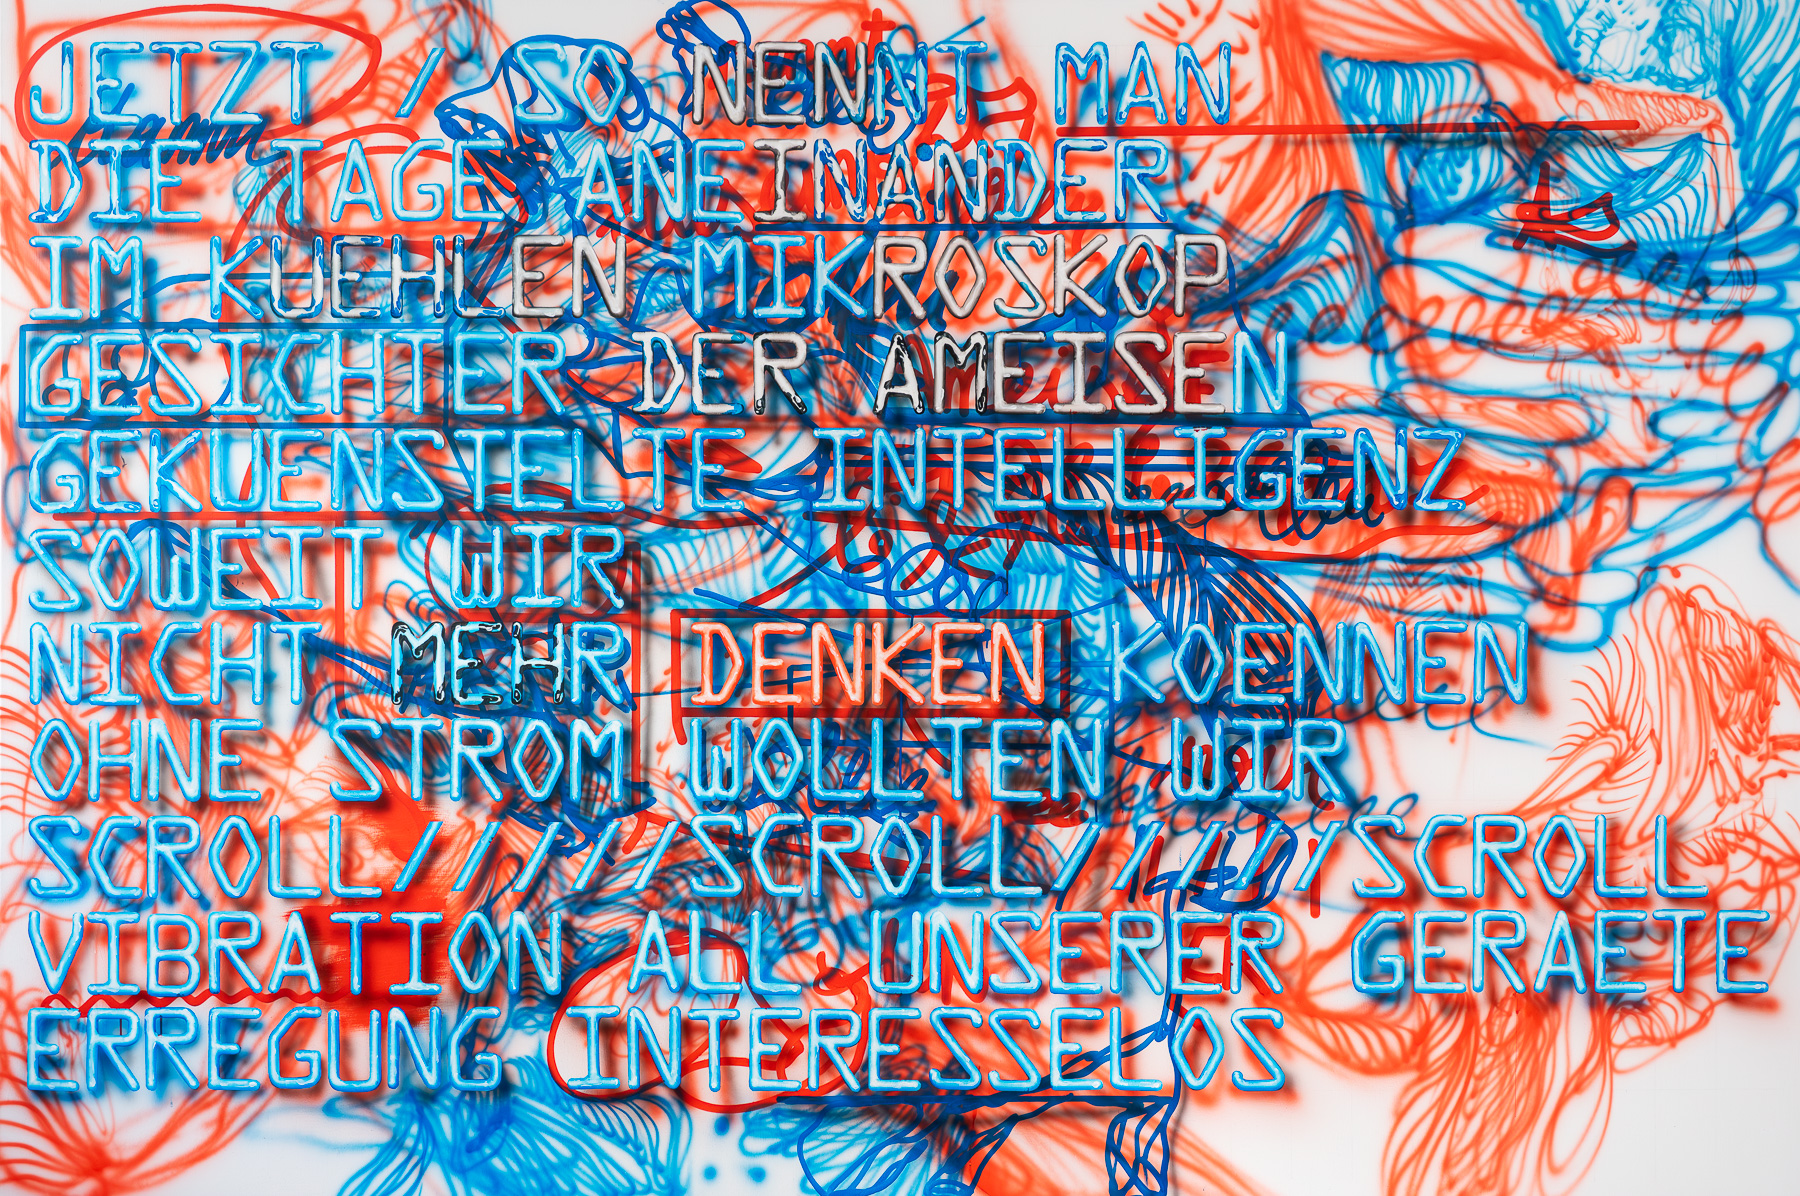 JETZT / SO NENNT MAN
DIE TAGE ANEINANDER
IM KUEHLEN MIKROSKOP
GESICHTER DER AMEISEN
GEKUENSTELTE INTELLIGENZ
SOWEIT WIR
NICHT MEHR DENKEN KOENNEN
OHNE STROM WOLLTEN WIR
SCROLL/////SCROLL/////SCROLL
VIBRATION ALL UNSERER GERAETE
ERREGUNG INTERESSELOS